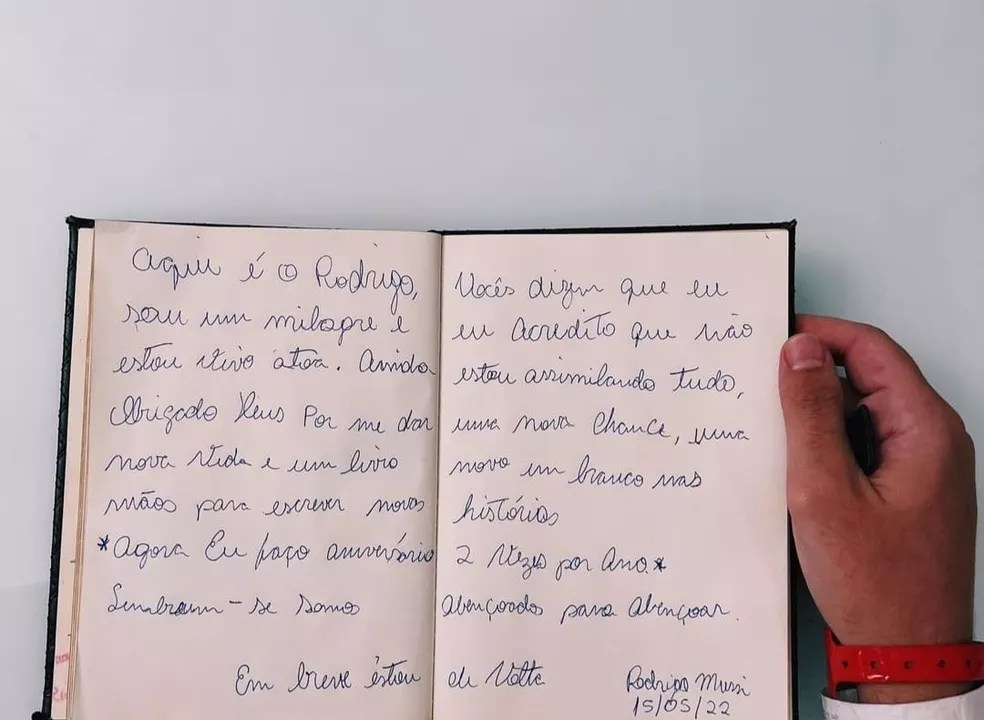 Aqui é o Rodrigo, Vocês dizem que eu
sou um milagre e eu acredito que não
estou vivo atoa. Ainda estou assimilando tudo,
Obrigado Deus Por me dar uma nova Chance, uma
nova vida e um livro novo em branco nas
mãos para escrever novas histórias
*Agora Eu faço aniversário 2 Vezes por Ano.*
Lembram-se somos Abençoados para Abençoar.
Em breve estou de Volta
Rodrigo Mussi
15/05/22